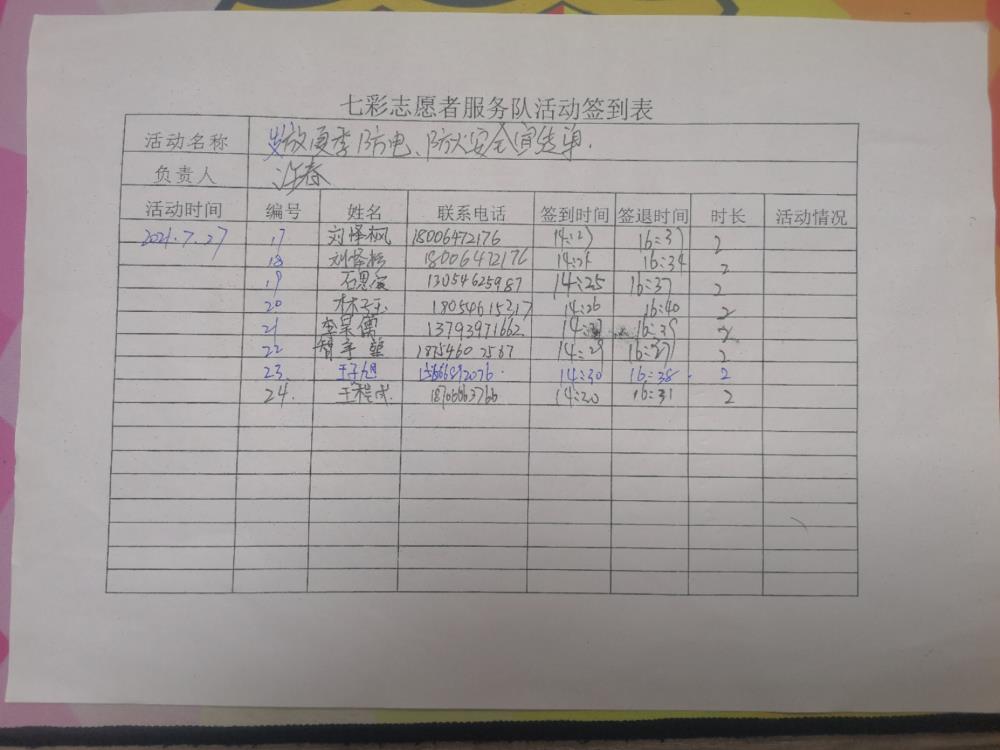 七彩志愿者服务队活动签到表
活动名称 发放夏季防电、防火安全宣传单.
负责人 许春
活动时间 编号 姓名 联系电话 签到时间 签退时间 时长 活动情况
2021.7.27 17 刘怿枫 18006472176 14:27 16:37 2
18 刘怿 18006472176 14:26 16:34 2
19 石思 13054625987 14:25 16:37 2
20 林子玉 18054615317 14:26 16:40 2
21 李昊儒 13793971662 16:35 2
22 1875460 2587 14:29 16:37 2
23. 王子旭 14:30 16:38. 2
24. 王程成 14:20 16:31 2